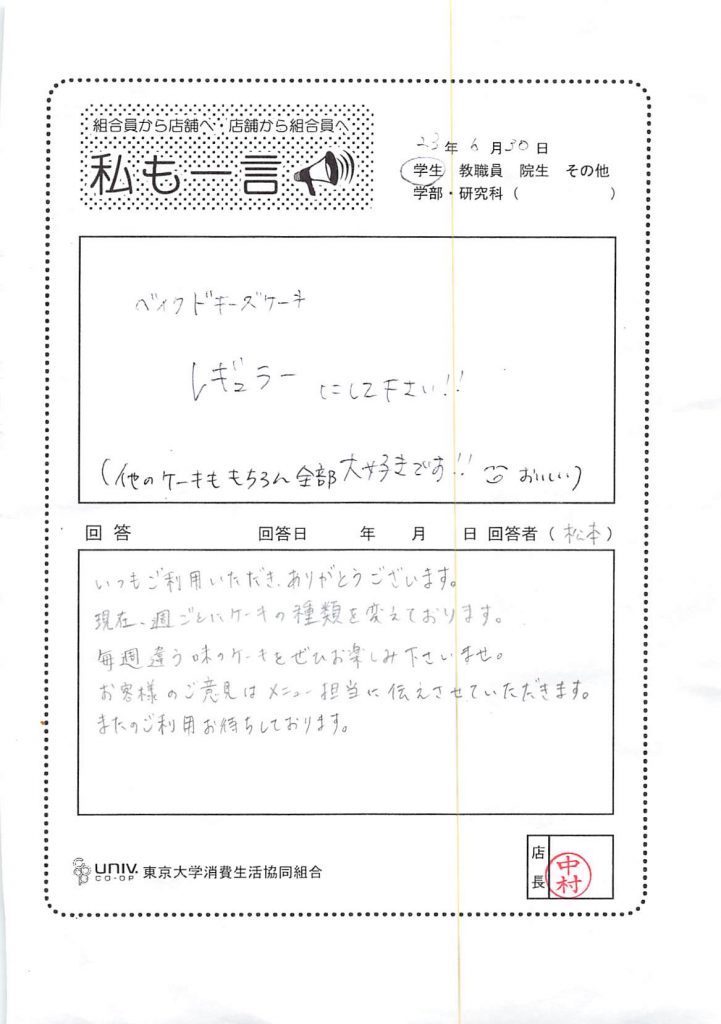 組合員から店舗へ・店舗から組合員へ
私も一言
23年 6月30日
学生 教職員 院生 その他
学部・研究科（ ）
ベイクドチーズケーキ
レギュラーにして下さい!!
(他のケーキももちろん全部大好きです!! おいしい)
回答 回答日 年 月 日 回答者（松本）
いつもご利用いただき、ありがとうございます。
現在、週ごとにケーキの種類を変えております。
毎週違う味のケーキをぜひお楽しみ下さいませ。
お客様のご意見はメニュー担当に伝えさせていただきます。
またのご利用お待ちしております。
UNIV. CO-OP 東京大学消費生活協同組合
店長 中村